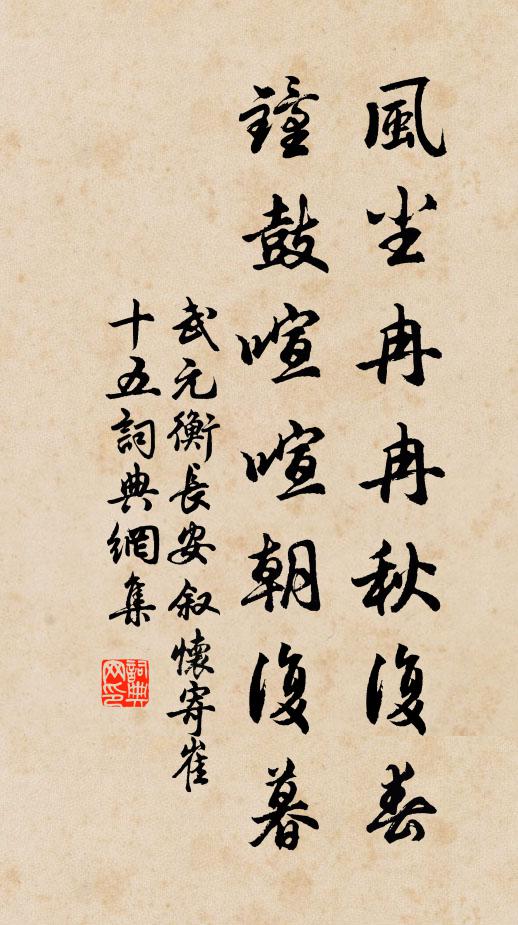 風尘冉冉秋復春
鐘鼓喧喧朝復暮
武元衡長安叙懷寄崔
十五詞典網集
詞典网印